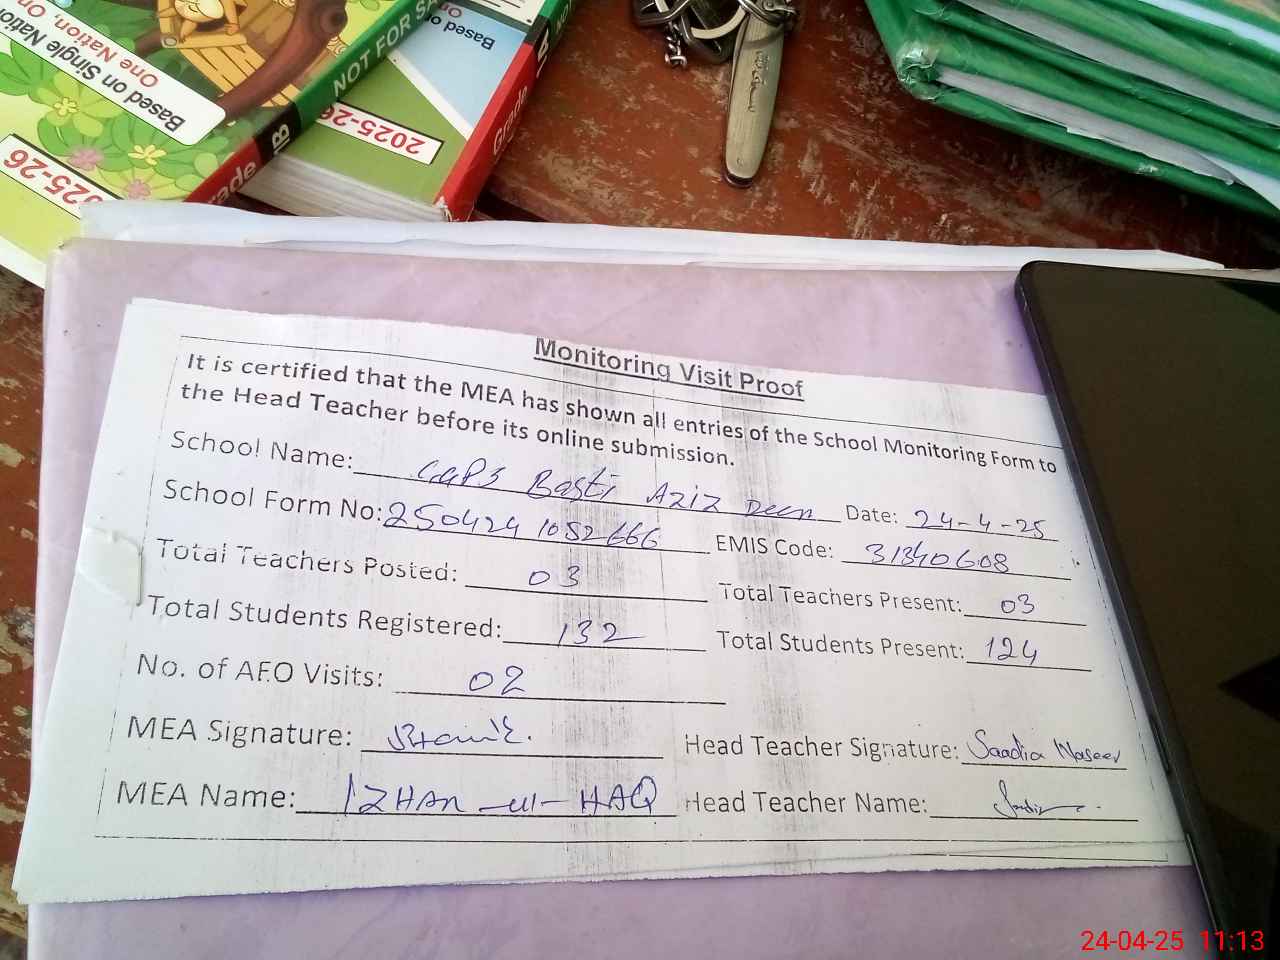 Based on Single Natio
One Nation, On
025-26
NOT FOR SA
ade 1B
Based o
On
2025-26
Grade
Monitoring Visit Proof
It is certified that the MEA has shown all entries of the School Monitoring Form to
the Head Teacher before its online submission.
School Name: GGPS Basti Aziz Deen Date: 24-4-25
School Form No: 250424 1052666 EMIS Code: 31340608
Total Teachers Posted: 03 Total Teachers Present: 03
Total Students Registered: 132 Total Students Present: 124
No. of AEO Visits: 02
MEA Signature: Head Teacher Signature: Saadia Naseer
MEA Name: IZHAR-ul-HAQ Head Teacher Name:
24-04-25 11:13